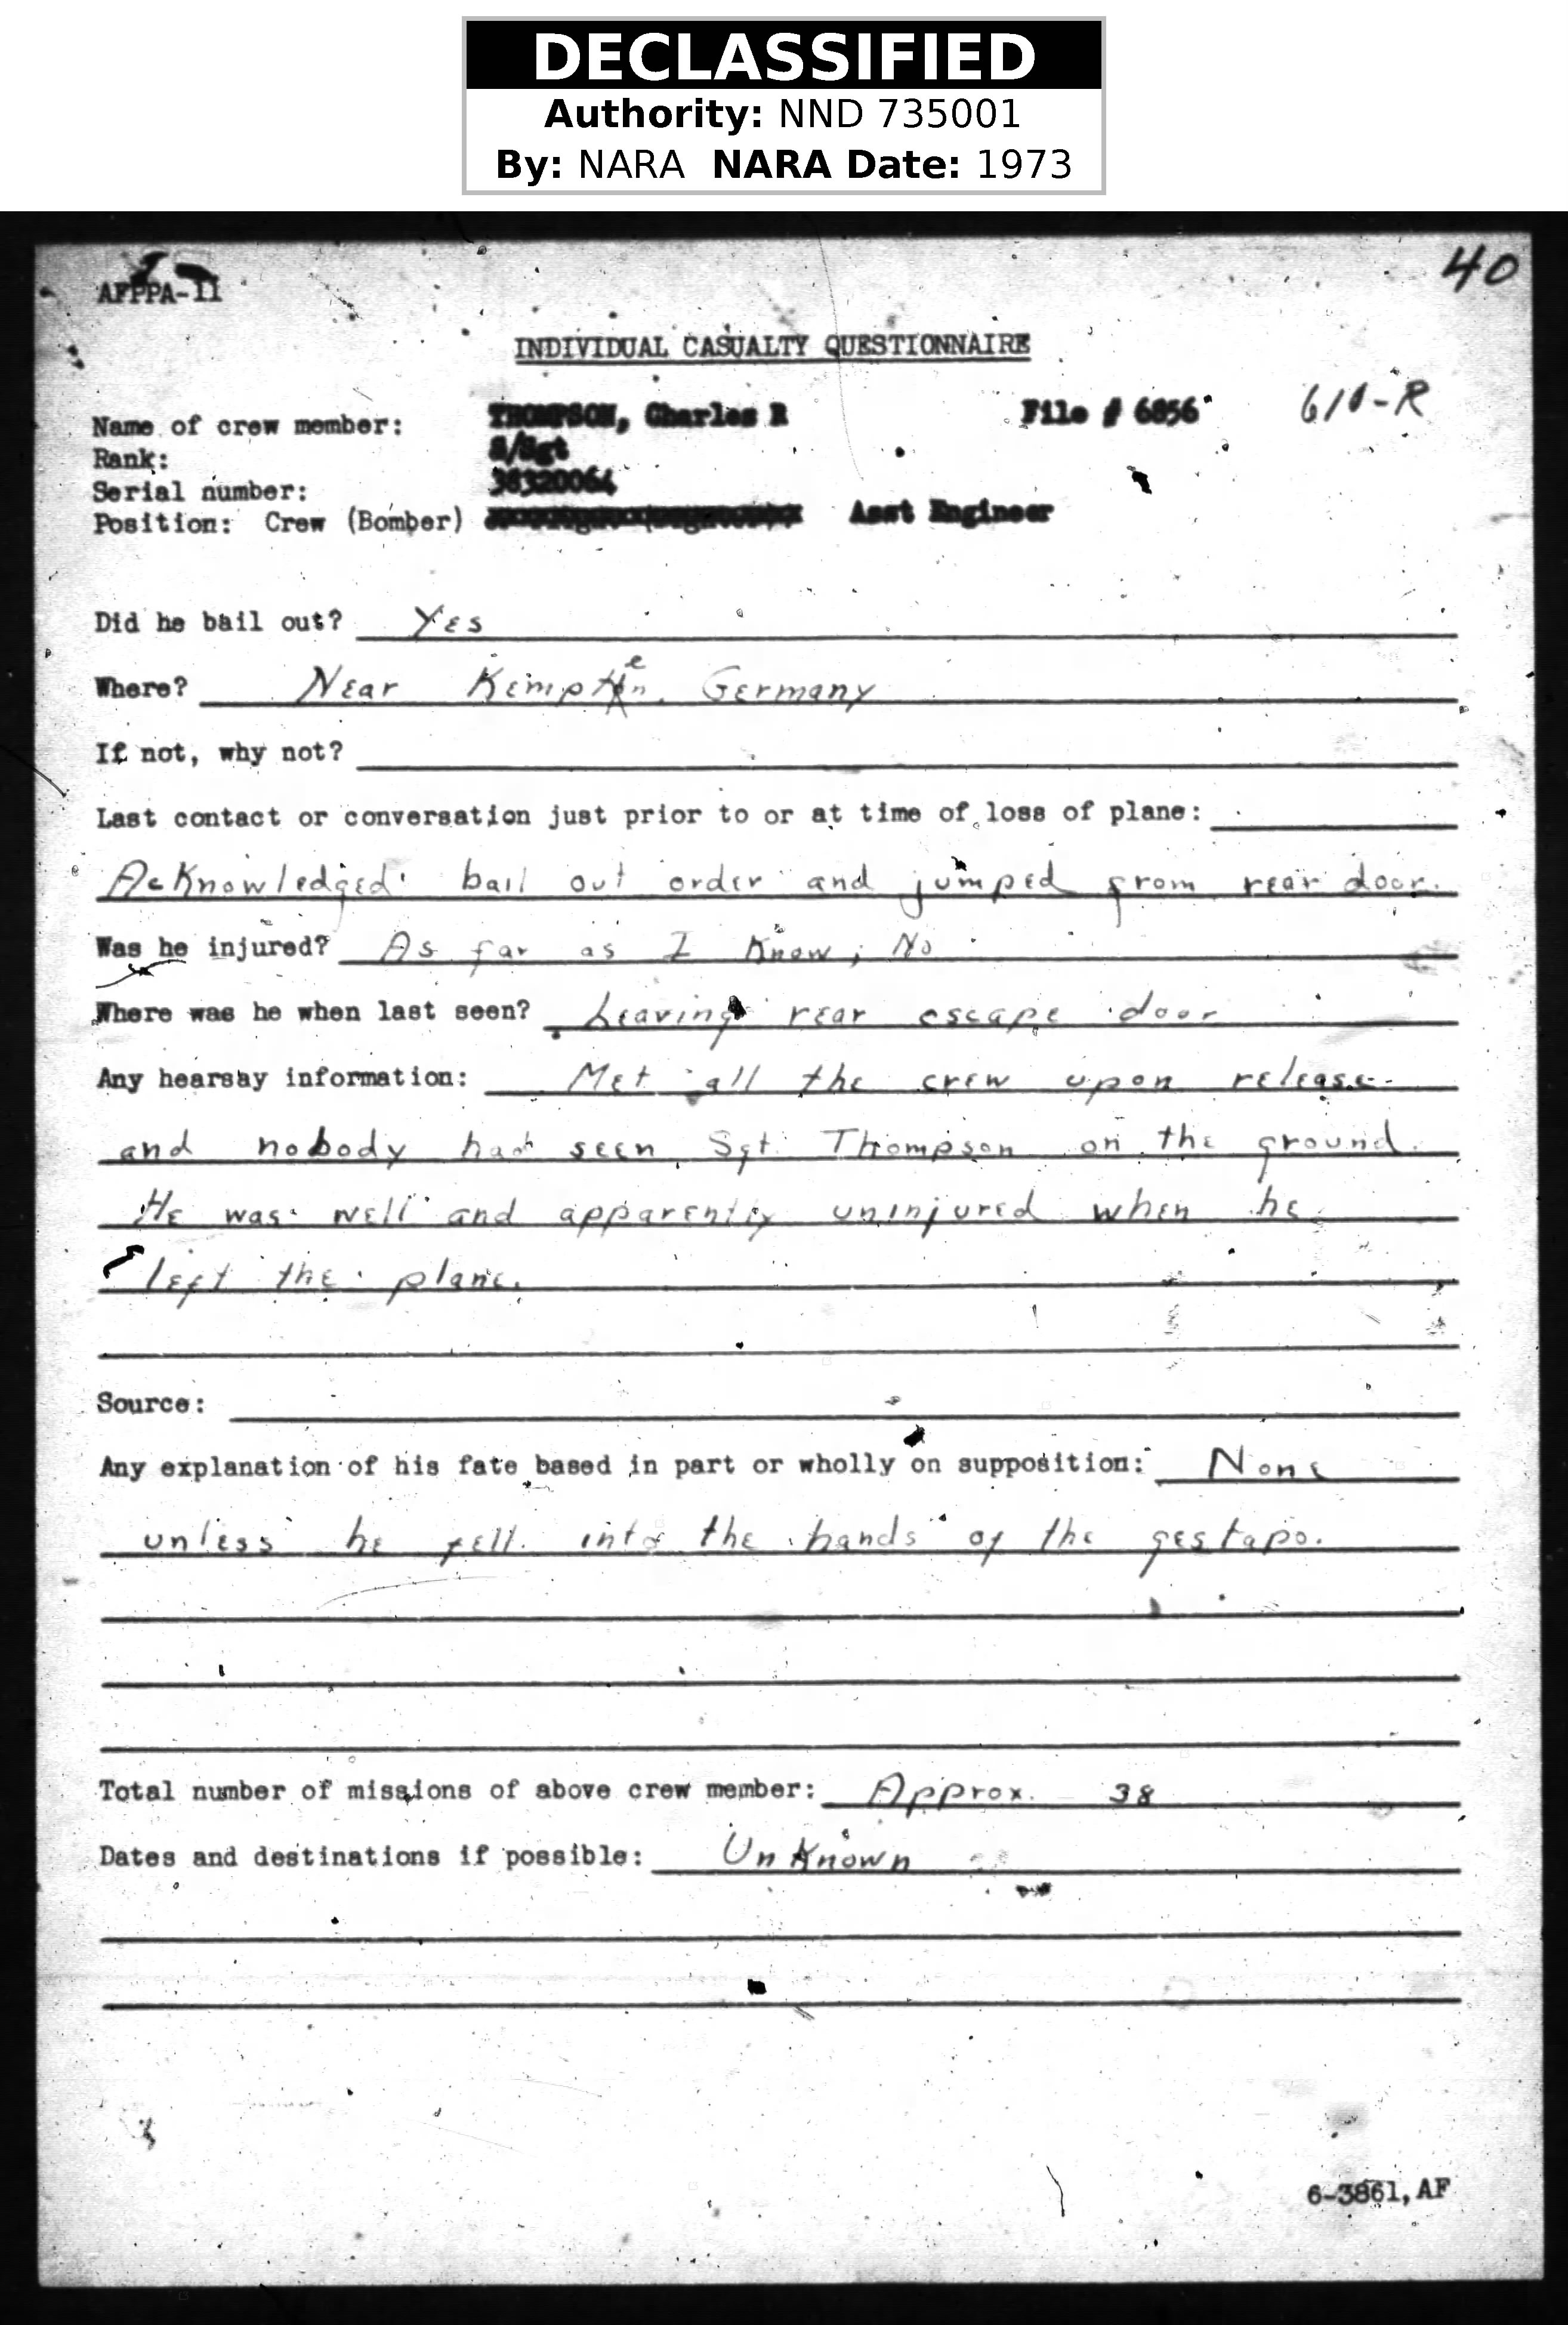 DECLASSIFIED
Authority: NND 735001
By: NARA NARA Date: 1973
40
AFPPA-11
INDIVIDUAL CASUALTY QUESTIONNAIRE
Name of crew member: THOMPSON, Charles R File # 6856 610-R
Rank: S/Sgt
Serial number: 38320064
Position: Crew (Bomber) Asst Engineer
Did he bail out? Yes
Where? Near Kempten, Germany
If not, why not?
Last contact or conversation just prior to or at time of loss of plane:
Acknowledged bail out order and jumped from rear door.
Was he injured? As far as I know, No
Where was he when last seen? Leaving rear escape door
Any hearsay information: Met all the crew upon release
and nobody had seen Sgt Thompson on the ground.
He was well and apparently uninjured when he
left the plane.
Source:
Any explanation of his fate based in part or wholly on supposition: None
unless he fell into the hands of the gestapo.
Total number of missions of above crew member: Approx. 38
Dates and destinations if possible: Unknown
6-3861, AF